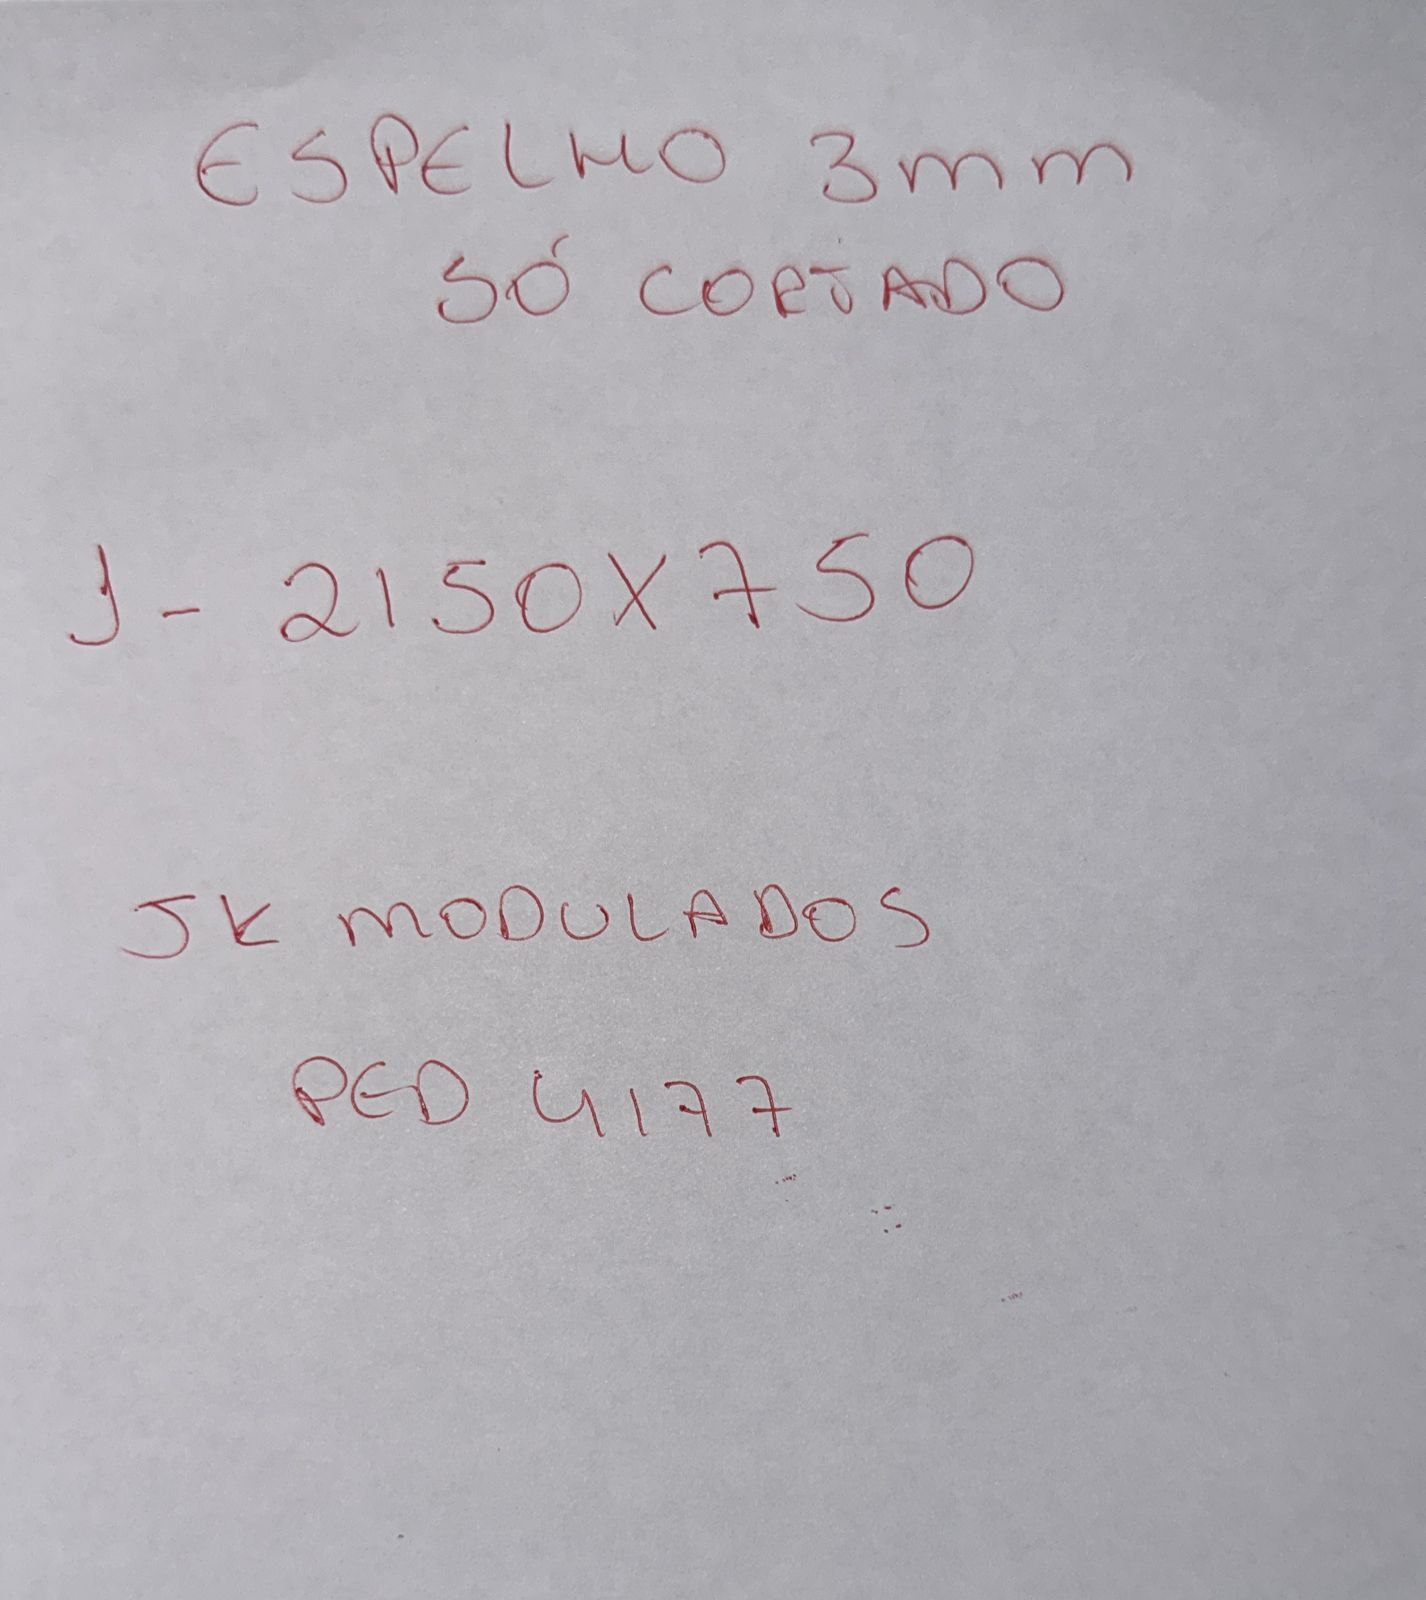 ESPELHO 3mm
SÓ CORTADO
1 - 2150X750
JK MODULADOS
PED 4177